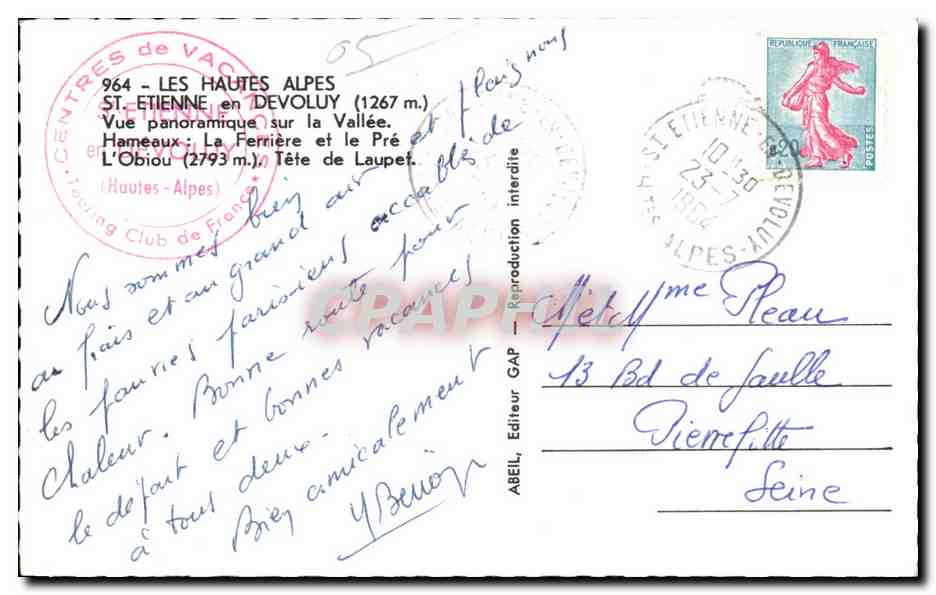 964 - LES HAUTES ALPES
ST. ETIENNE en DEVOLUY (1267 m.)
Vue panoramique sur la Vallée.
Hameaux : La Ferrière et le Pré
L'Obiou (2793 m.), Tête de Laupet.
CENTRES de VACANCES
ST ETIENNE
en DEVOLUY
(Hautes-Alpes)
Touring Club de France
05
Nous sommes bien au
frais et au grand air et plaignons
les pauvres parisiens accablés de
chaleur. Bonne route pour
le départ et bonnes vacances
à tous deux.
Bien amicalement
ABEIL, Editeur GAP — Reproduction interdite
CPAPHIL
REPUBLIQUE FRANÇAISE
0,20
POSTES
ST ETIENNE-EN-DEVOLUY
10 H 30
23-7
1964
HTES ALPES
M et Mme Pleau
13 Bd de Gaulle
Pierrefitte
Seine